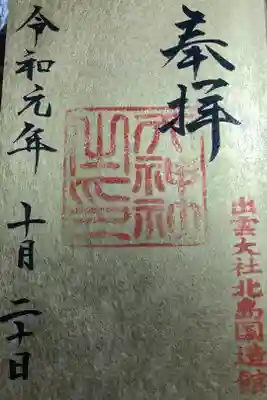 奉拝
出雲大社北島國造館
令和元年 十月 二十日